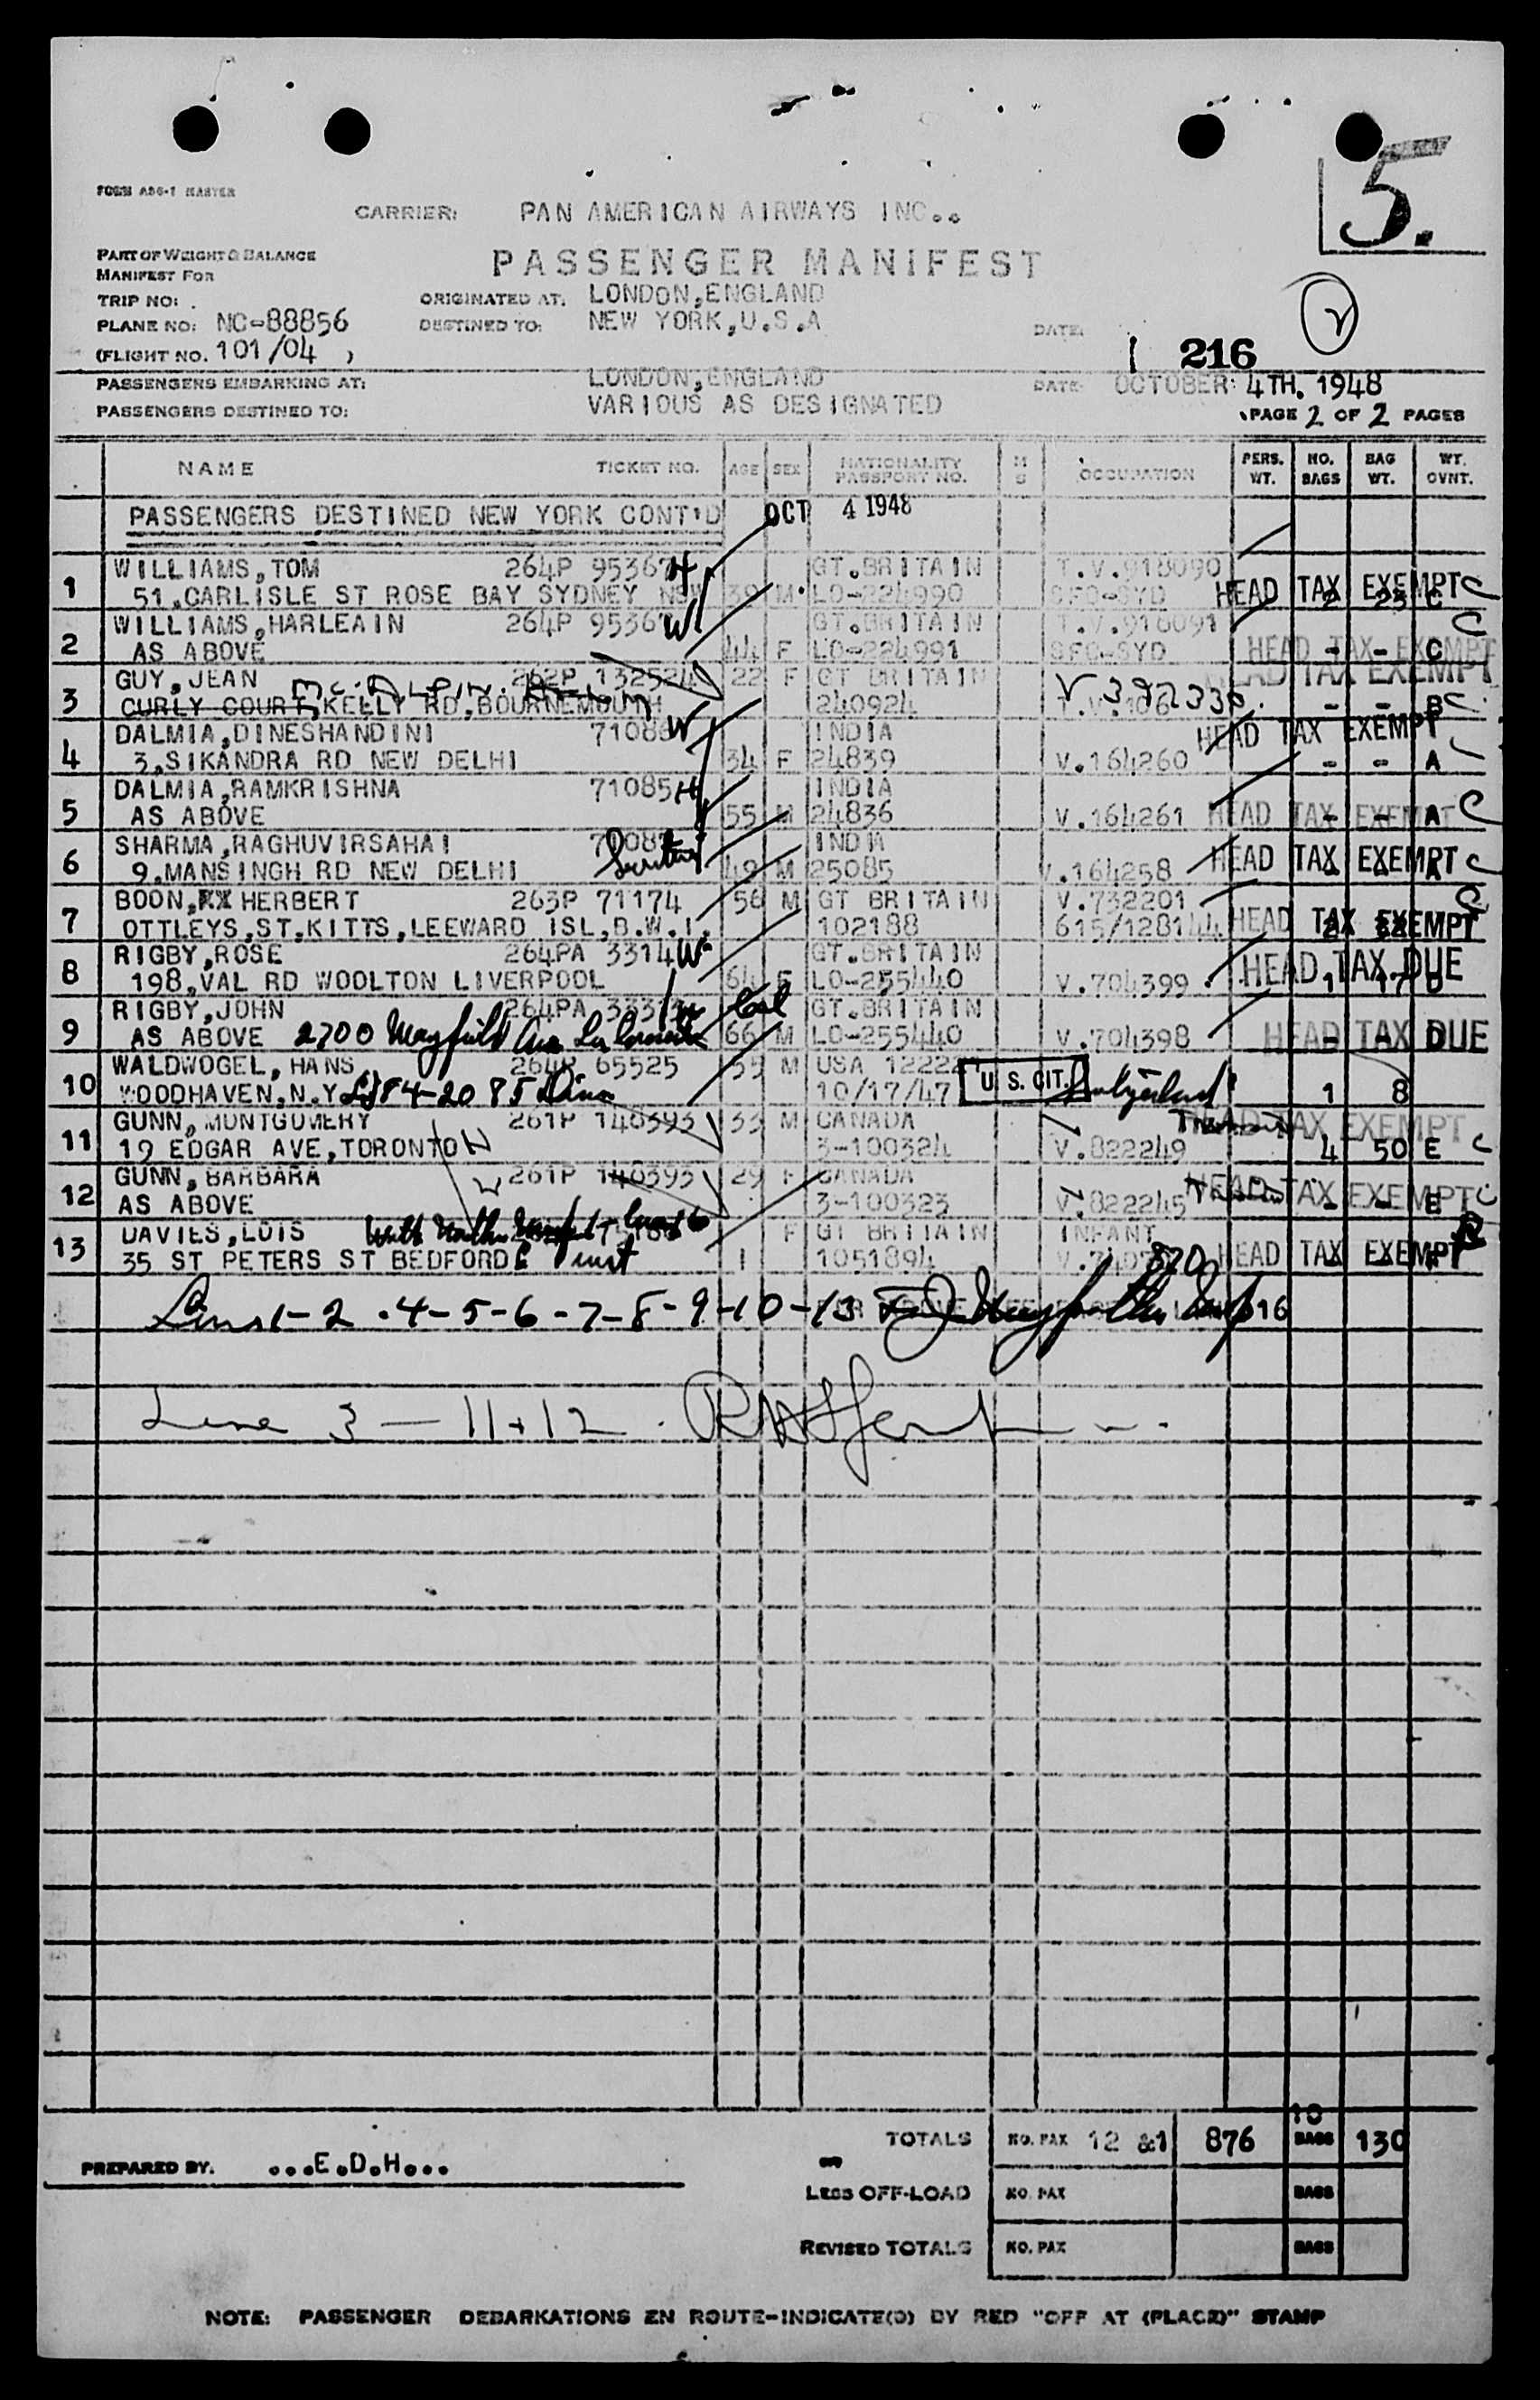 5.
FORM ADG-1 MASTER
CARRIER: PAN AMERICAN AIRWAYS INC..
PART OF WEIGHT & BALANCE
MANIFEST FOR
PASSENGER MANIFEST
TRIP NO: . ORIGINATED AT: LONDON,ENGLAND
PLANE NO: NC-88856 DESTINED TO: NEW YORK,U.S.A DATE:
(FLIGHT NO. 101/04 ) 1 216
PASSENGERS EMBARKING AT: LONDON,ENGLAND DATE OCTOBER: 4TH. 1948
PASSENGERS DESTINED TO: VARIOUS AS DESIGNATED PAGE 2 OF 2 PAGES
NAME TICKET NO. AGE SEX NATIONALITY PASSPORT NO. M S OCCUPATION PERS. WT. NO. BAGS BAG WT. WT. CVNT.
PASSENGERS DESTINED NEW YORK CONT'D OCT 4 1948
1 WILLIAMS,TOM 264P 95367 H GT.BRITAIN T.V.918090
51.CARLISLE ST ROSE BAY SYDNEY NSW 39 M LO-224990 SFO-SYD HEAD TAX EXEMPT 2 23 C C
2 WILLIAMS,HARLEAIN 264P 95367 W GT.BRITAIN T.V.918091 C
AS ABOVE 44 F LO-224991 SFO-SYD HEAD TAX EXEMPT - - C
3 GUY,JEAN 262P 132524 22 F GT BRITAIN HEAD TAX EXEMPT
CURLY COURT,KELLY RD.BOURNEMOUTH 240924 V 392330. - - B C
4 DALMIA,DINESHANDINI 71086 W INDIA HEAD TAX EXEMPT
3,SIKANDRA RD NEW DELHI 34 F 24839 V.164260 - - A
5 DALMIA,RAMKRISHNA 71085 H INDIA
AS ABOVE 55 M 24836 V.164261 HEAD TAX EXEMPT - - A C
6 SHARMA,RAGHUVIRSAHAI INDIA
9.MANSINGH RD NEW DELHI 49 M 25085 V.164258 HEAD TAX EXEMPT A C
7 BOON, HERBERT 263P 71174 56 M GT BRITAIN V.732201 C
OTTLEYS,ST.KITTS,LEEWARD ISL,B.W.I. 102188 615/128144 HEAD TAX EXEMPT
8 RIGBY,ROSE 264PA 3314 W GT.BRITAIN
198,VAL RD WOOLTON LIVERPOOL 64 F LO-255440 V.704399 HEAD TAX DUE 1 17 D
9 RIGBY,JOHN GT.BRITAIN
AS ABOVE 2700 Mayfield Ave La Crescenta Cal 66 M LO-255440 V.704398 HEAD TAX DUE - - D
10 WALDWOGEL,HANS 264P 65525 55 M USA 12222 U. S. CIT.
WOODHAVEN,N.Y 84-20 85 10/17/47 1 8
11 GUNN,MONTGOMERY 261P 140393 33 M CANADA HEAD TAX EXEMPT
19 EDGAR AVE,TORONTO 3-100324 V.822249 4 50 E C
12 GUNN,BARBARA 261P 140393 29 F CANADA HEAD TAX EXEMPT
AS ABOVE 3-100323 V.822245 - - E
13 DAVIES,LOIS F GT BRITAIN INFANT
35 ST PETERS ST BEDFORD 1 1051894 820 HEAD TAX EXEMPT
Lines 1-2 .4-5-6-7-8-9-10-13
Line 3 — 11+12 .
TOTALS NO. PAX 12 &1 876 10 BAGS 130
PREPARED BY. ...E.D.H...
LESS OFF-LOAD NO. PAX BAGS
REVISED TOTALS NO. PAX BAGS
NOTE: PASSENGER DEBARKATIONS EN ROUTE-INDICATE(D) BY RED "OFF AT (PLACE)" STAMP